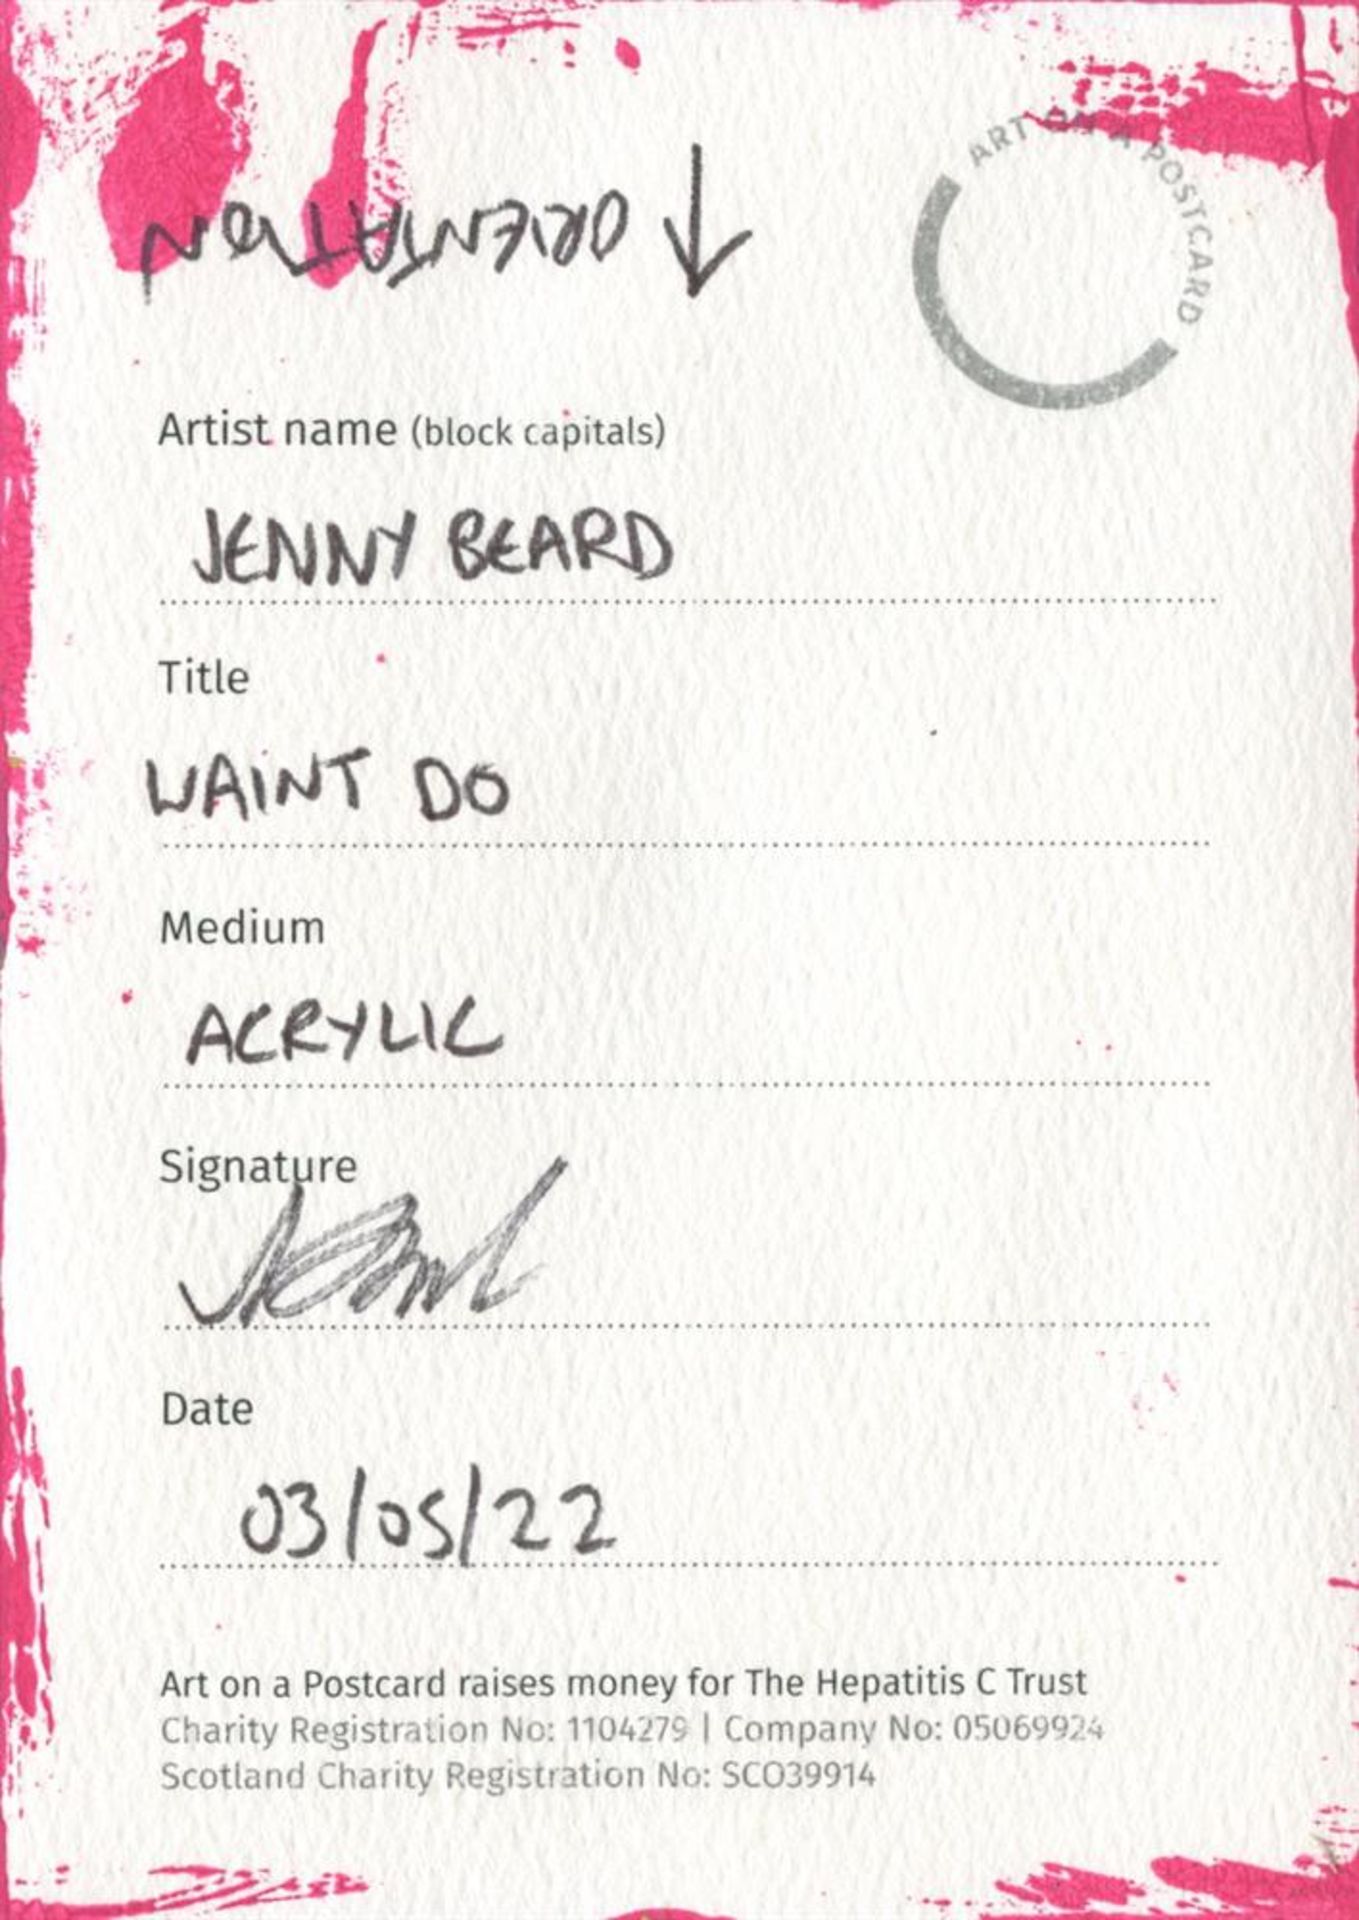 ORIENTATION
ART ON A POSTCARD
Artist name (block capitals)
JENNY BEARD
Title
WAINT DO
Medium
ACRYLIC
Signature
Date
03/05/22
Art on a Postcard raises money for The Hepatitis C Trust
Charity Registration No: 1104279 | Company No: 05069924
Scotland Charity Registration No: SCO39914